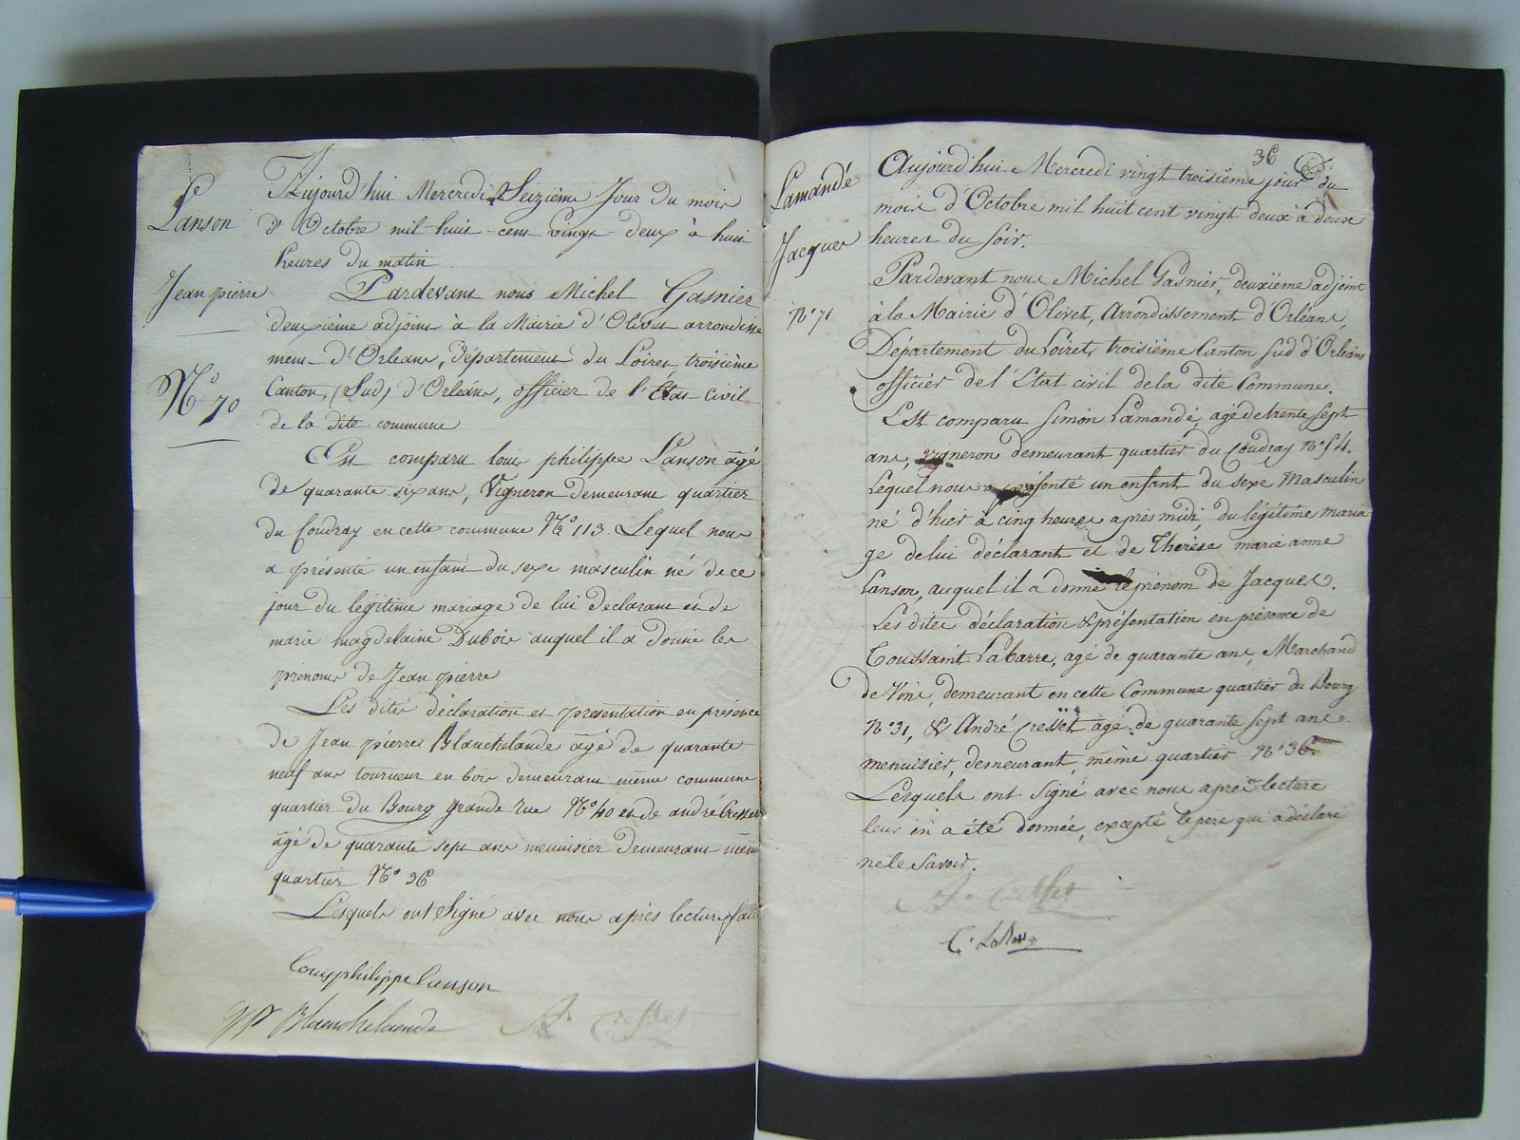 Lanson
Jean pierre
N° 70
Aujourd'hui Mercredi Seizième Jour du mois
d'Octobre mil-huit-cent vingt-deux à huit
heures du matin
Pardevant nous Michel Gasnier
deuxième adjoint à la Mairie d'Olivet arrondisse
ment d'Orleans, Département du Loiret troisième
Canton, (Sud) d'Orleans, officier de l'Etat civil
de la dite commune
Est comparu louis philippe Lanson agé
de quarante six ans, Vigneron demeurant quartier
du Coudray en cette commune N° 113. Lequel nous
a présenté un enfant du sexe masculin né de ce
jour du légitime mariage de lui Déclarant et de
marie magdelaine Dubois auquel il a donné les
prénoms de Jean pierre
Les dites déclaration et presentation en présence
de Jean pierre Blanchelande agé de quarante
neuf ans tourneur en bois demeurant même commune
quartier du Bourg grande rue N° 40 et de andré Cresset
agé de quarante sept ans menuisier Demeurant même
quartier N° 36
Lesquels ont Signé avec nous après lecture fait
Louis philippe Lanson
JP Blanchelande A. Cresset
36
Lamandé
Jacques
N° 71
Aujourd'hui Mercredi vingt troisième jour du
mois d'Octobre mil huit cent vingt deux à deux
heures du soir.
Pardevant nous Michel Gasnier, deuxième adjoint
à la Mairie d'Olivet, Arrondissement d'Orléans,
Département du Loiret, troisième Canton sud d'Orléans
officier de l'Etat civil de la dite Commune.
Est comparu Simon Lamandé, agé de trente sept
ans, vigneron demeurant quartier du Coudray N° 54.
Lequel nous a présenté un enfant du sexe Masculin
né d'hier à cinq heures après midi, du légitime maria
ge de lui déclarant et de Thérèse marie anne
Lanson, auquel il a donné le prénom de Jacques.
Les dites déclaration & présentation en présence de
Toussaint Labarre, agé de quarante ans, Marchand
de Vins, demeurant en cette Commune quartier du Bourg
N° 31, & André Cresset agé de quarante sept ans
menuisier, demeurant, même quartier N° 36
Lesquels ont signé avec nous après lecture
leur en a été donnée, excepté le pere qui a déclaré
ne le savoir.
A. Cresset